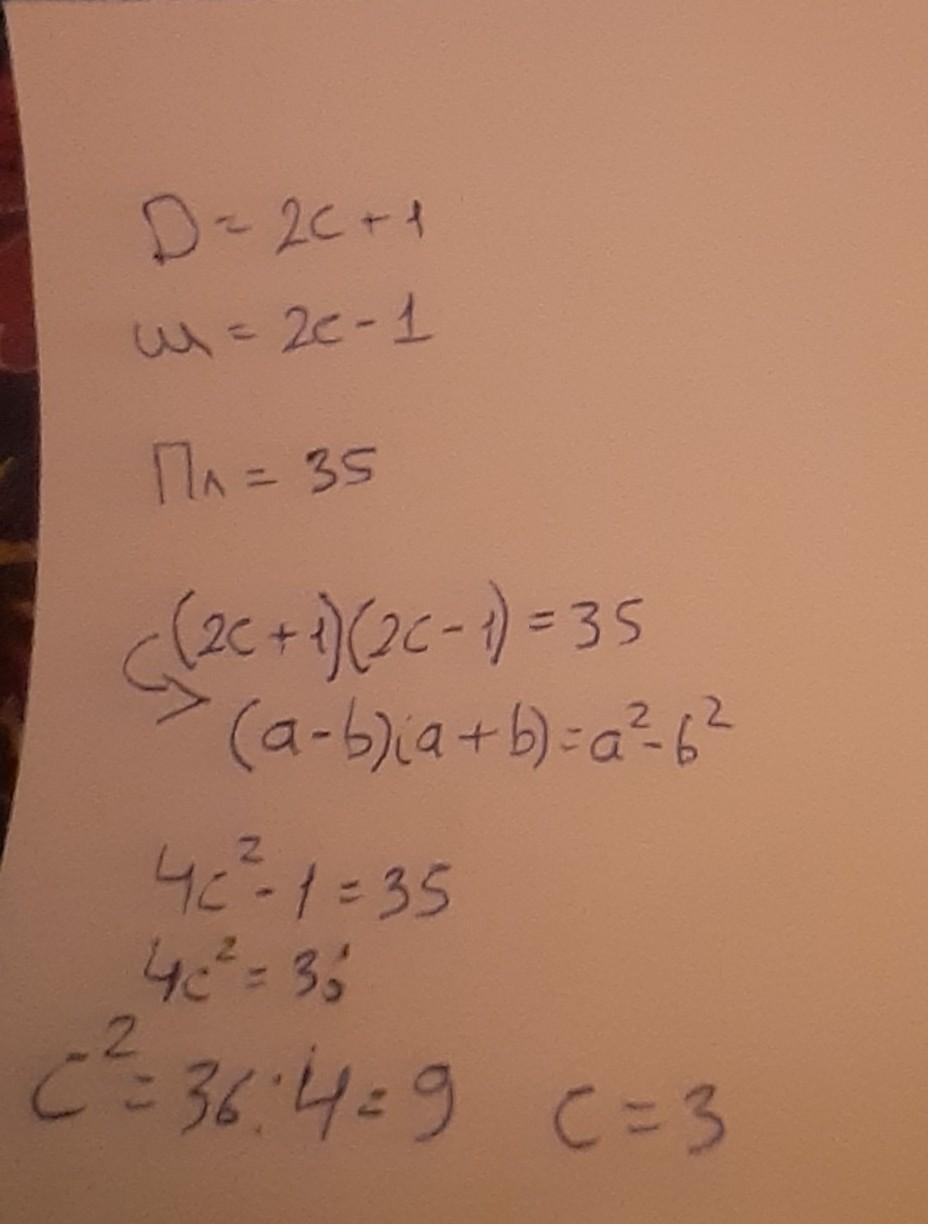 D = 2c + 1
ш = 2c - 1
Пл = 35
(2c + 1)(2c - 1) = 35
(a - b)(a + b) = a² - b²
4c² - 1 = 35
4c² = 36
c² = 36 : 4 = 9 c = 3